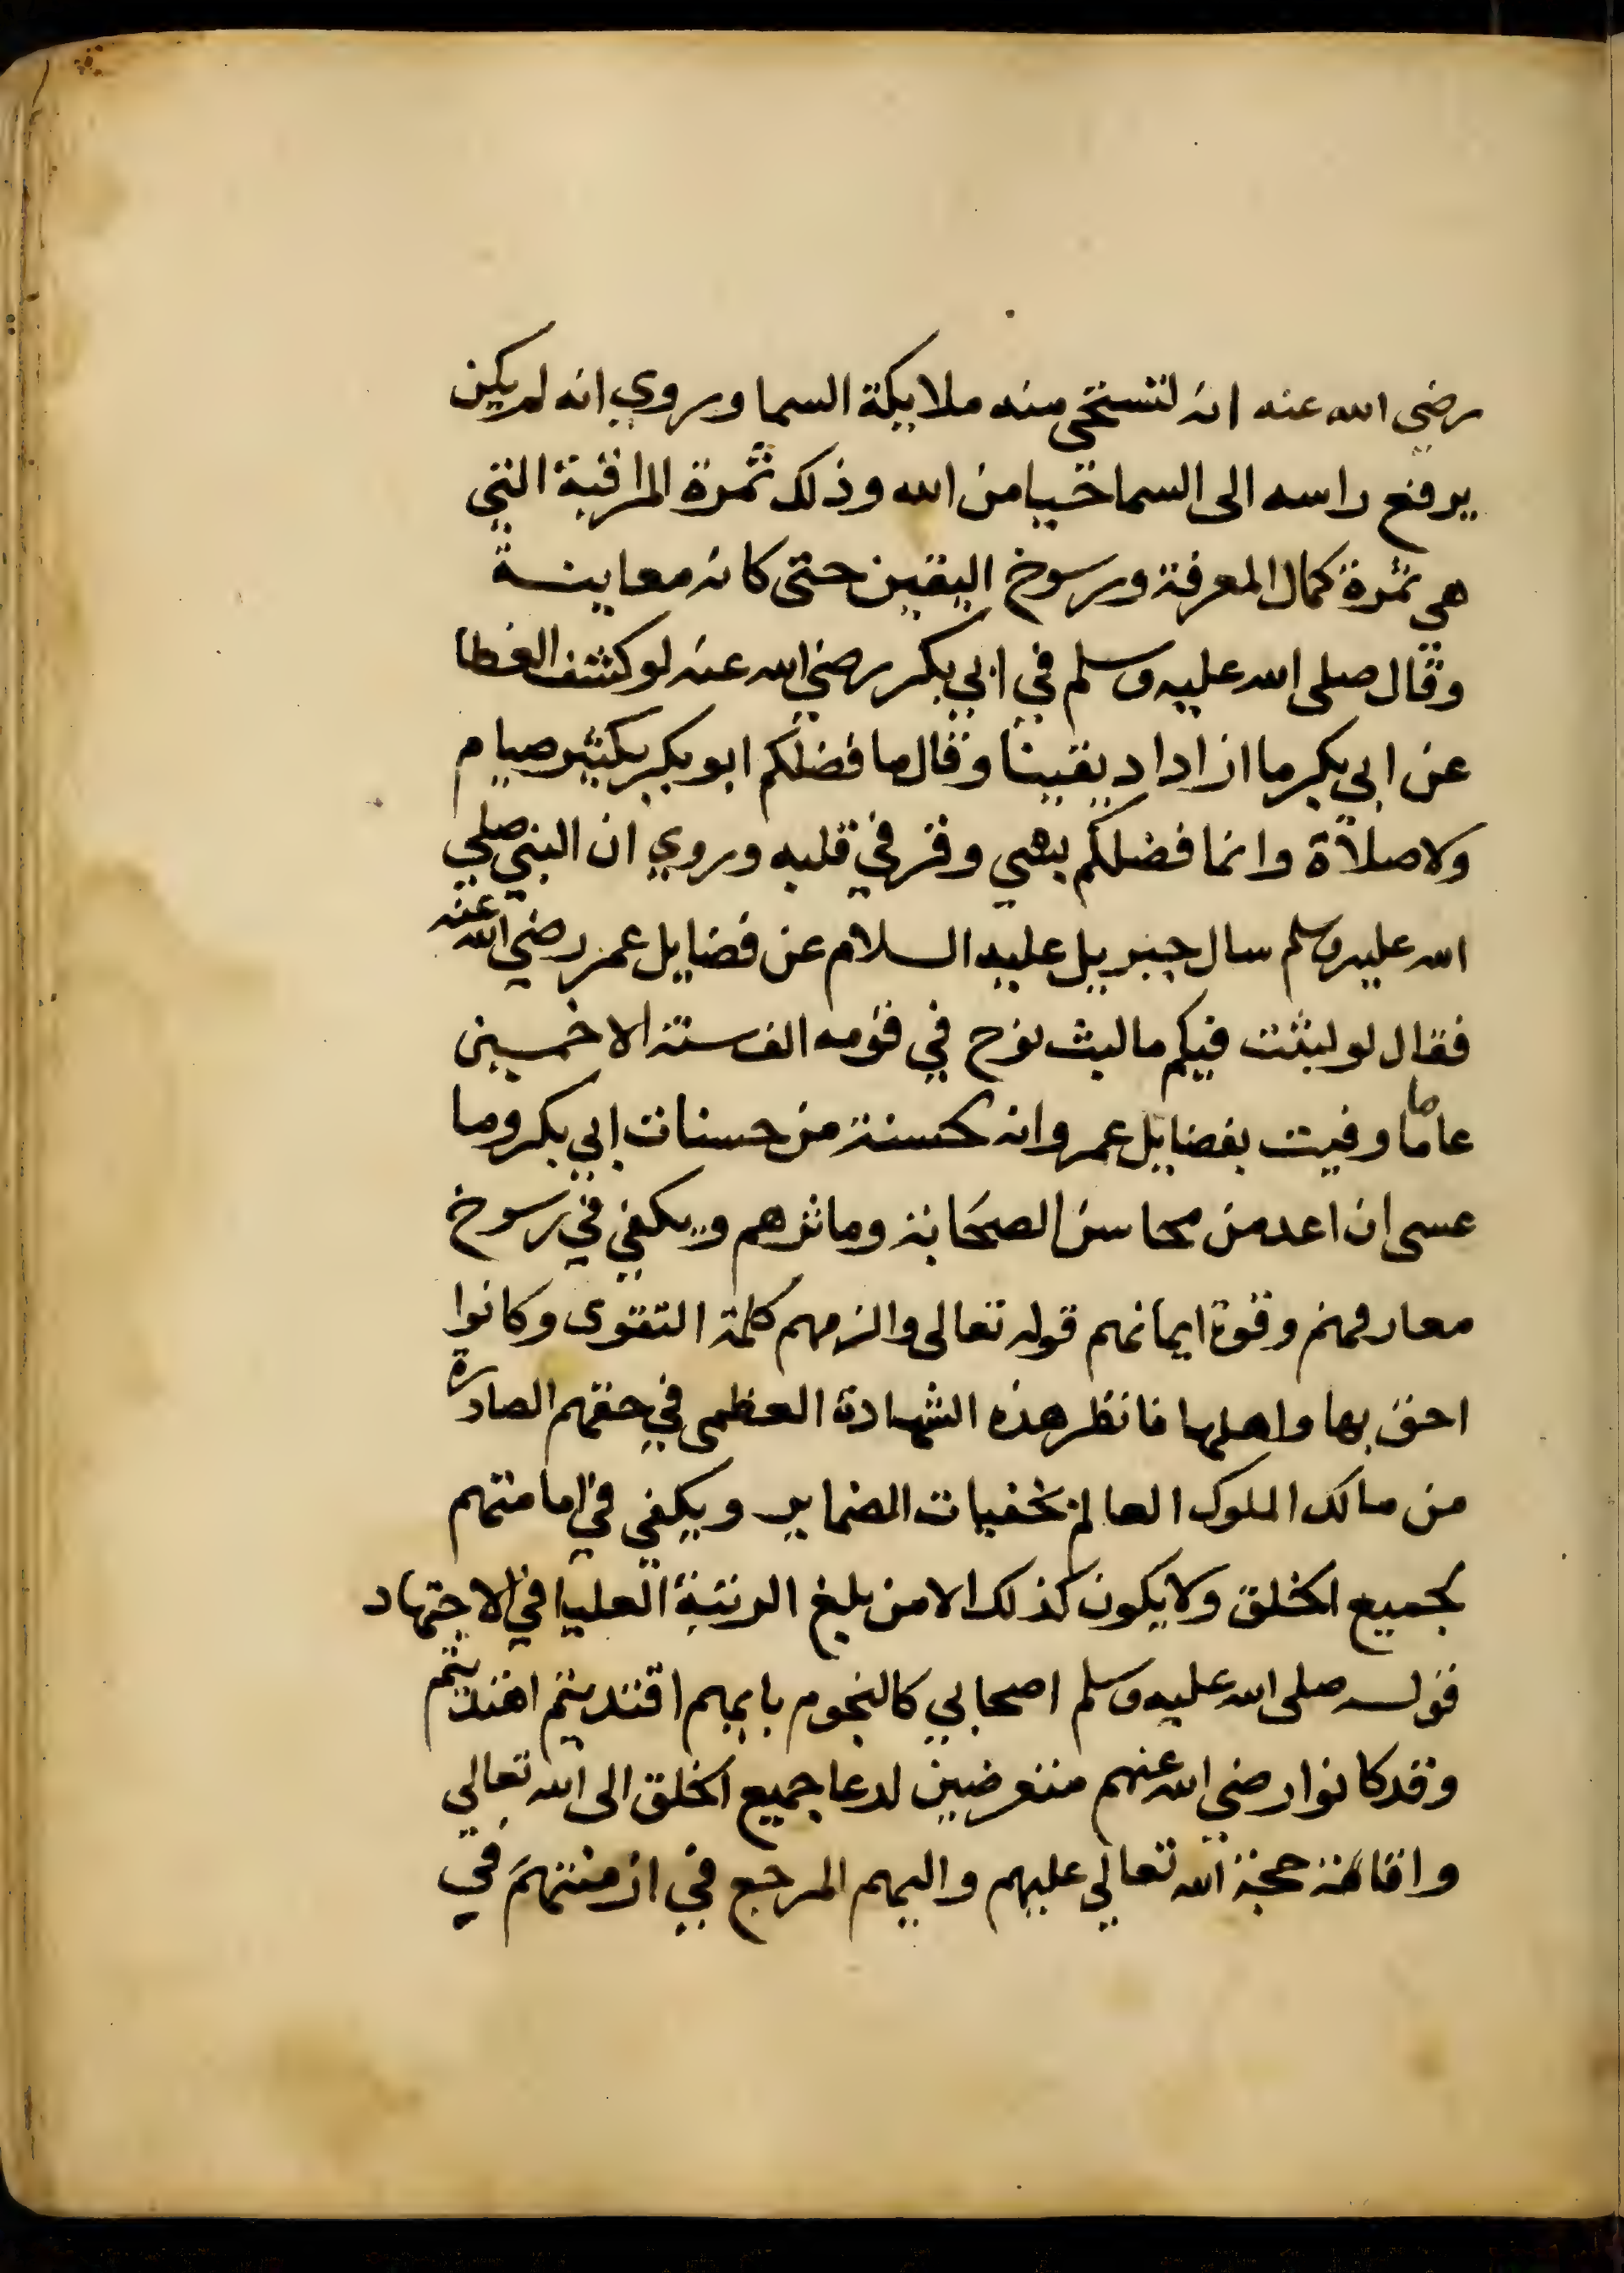 رضي الله عنه انه لتستحي منه ملايكة السما وروي انه لم يكن
يرفع راسه الى السما حيا من الله وذلك ثمرة المراقبة التي
هي ثمرة كمال المعرفة ورسوخ اليقين حتى كانه معاينة
وقال صلى الله عليه وسلم في ابي بكر رضي الله عنه لو كشف الغطا
عن ابي بكر ما ازداد يقينا وقال ما فضلكم ابو بكر بكثير صيام
ولا صلاة وانما فضلكم بشي وقر في قلبه وروي ان النبي صلي
الله عليه وسلم سال جبريل عليه السلام عن فضايل عمر رضي الله عنه
فقال لو لبثت فيكم ما لبث نوح في قومه الف سنة الا خمسين
عاما ما وفيت بفضايل عمر وانه لحسنة من حسنات ابي بكر وما
عسى ان اعد من محاسن الصحابة وماثرهم ويكفي في رسوخ
معارفهم وقوة ايمانهم قوله تعالى والزمهم كلمة التقوى وكانوا
احق بها واهلها فانظر هذه الشهادة العظمى في حقهم الصادرة
من مالك الملوك العالم بخفيات الضماير ويكفي في امامتهم
لجميع الخلق ولا يكون كذلك الا من بلغ الرتبة العليا في الاجتهاد
قوله صلى الله عليه وسلم اصحابي كالنجوم بايهم اقتديتم اهتديتم
وقد كانوا رضي الله عنهم متعرضين لدعا جميع الخلق الى الله تعالي
واقامة حجة الله تعالي عليهم واليهم المرجع في ازمنتهم في